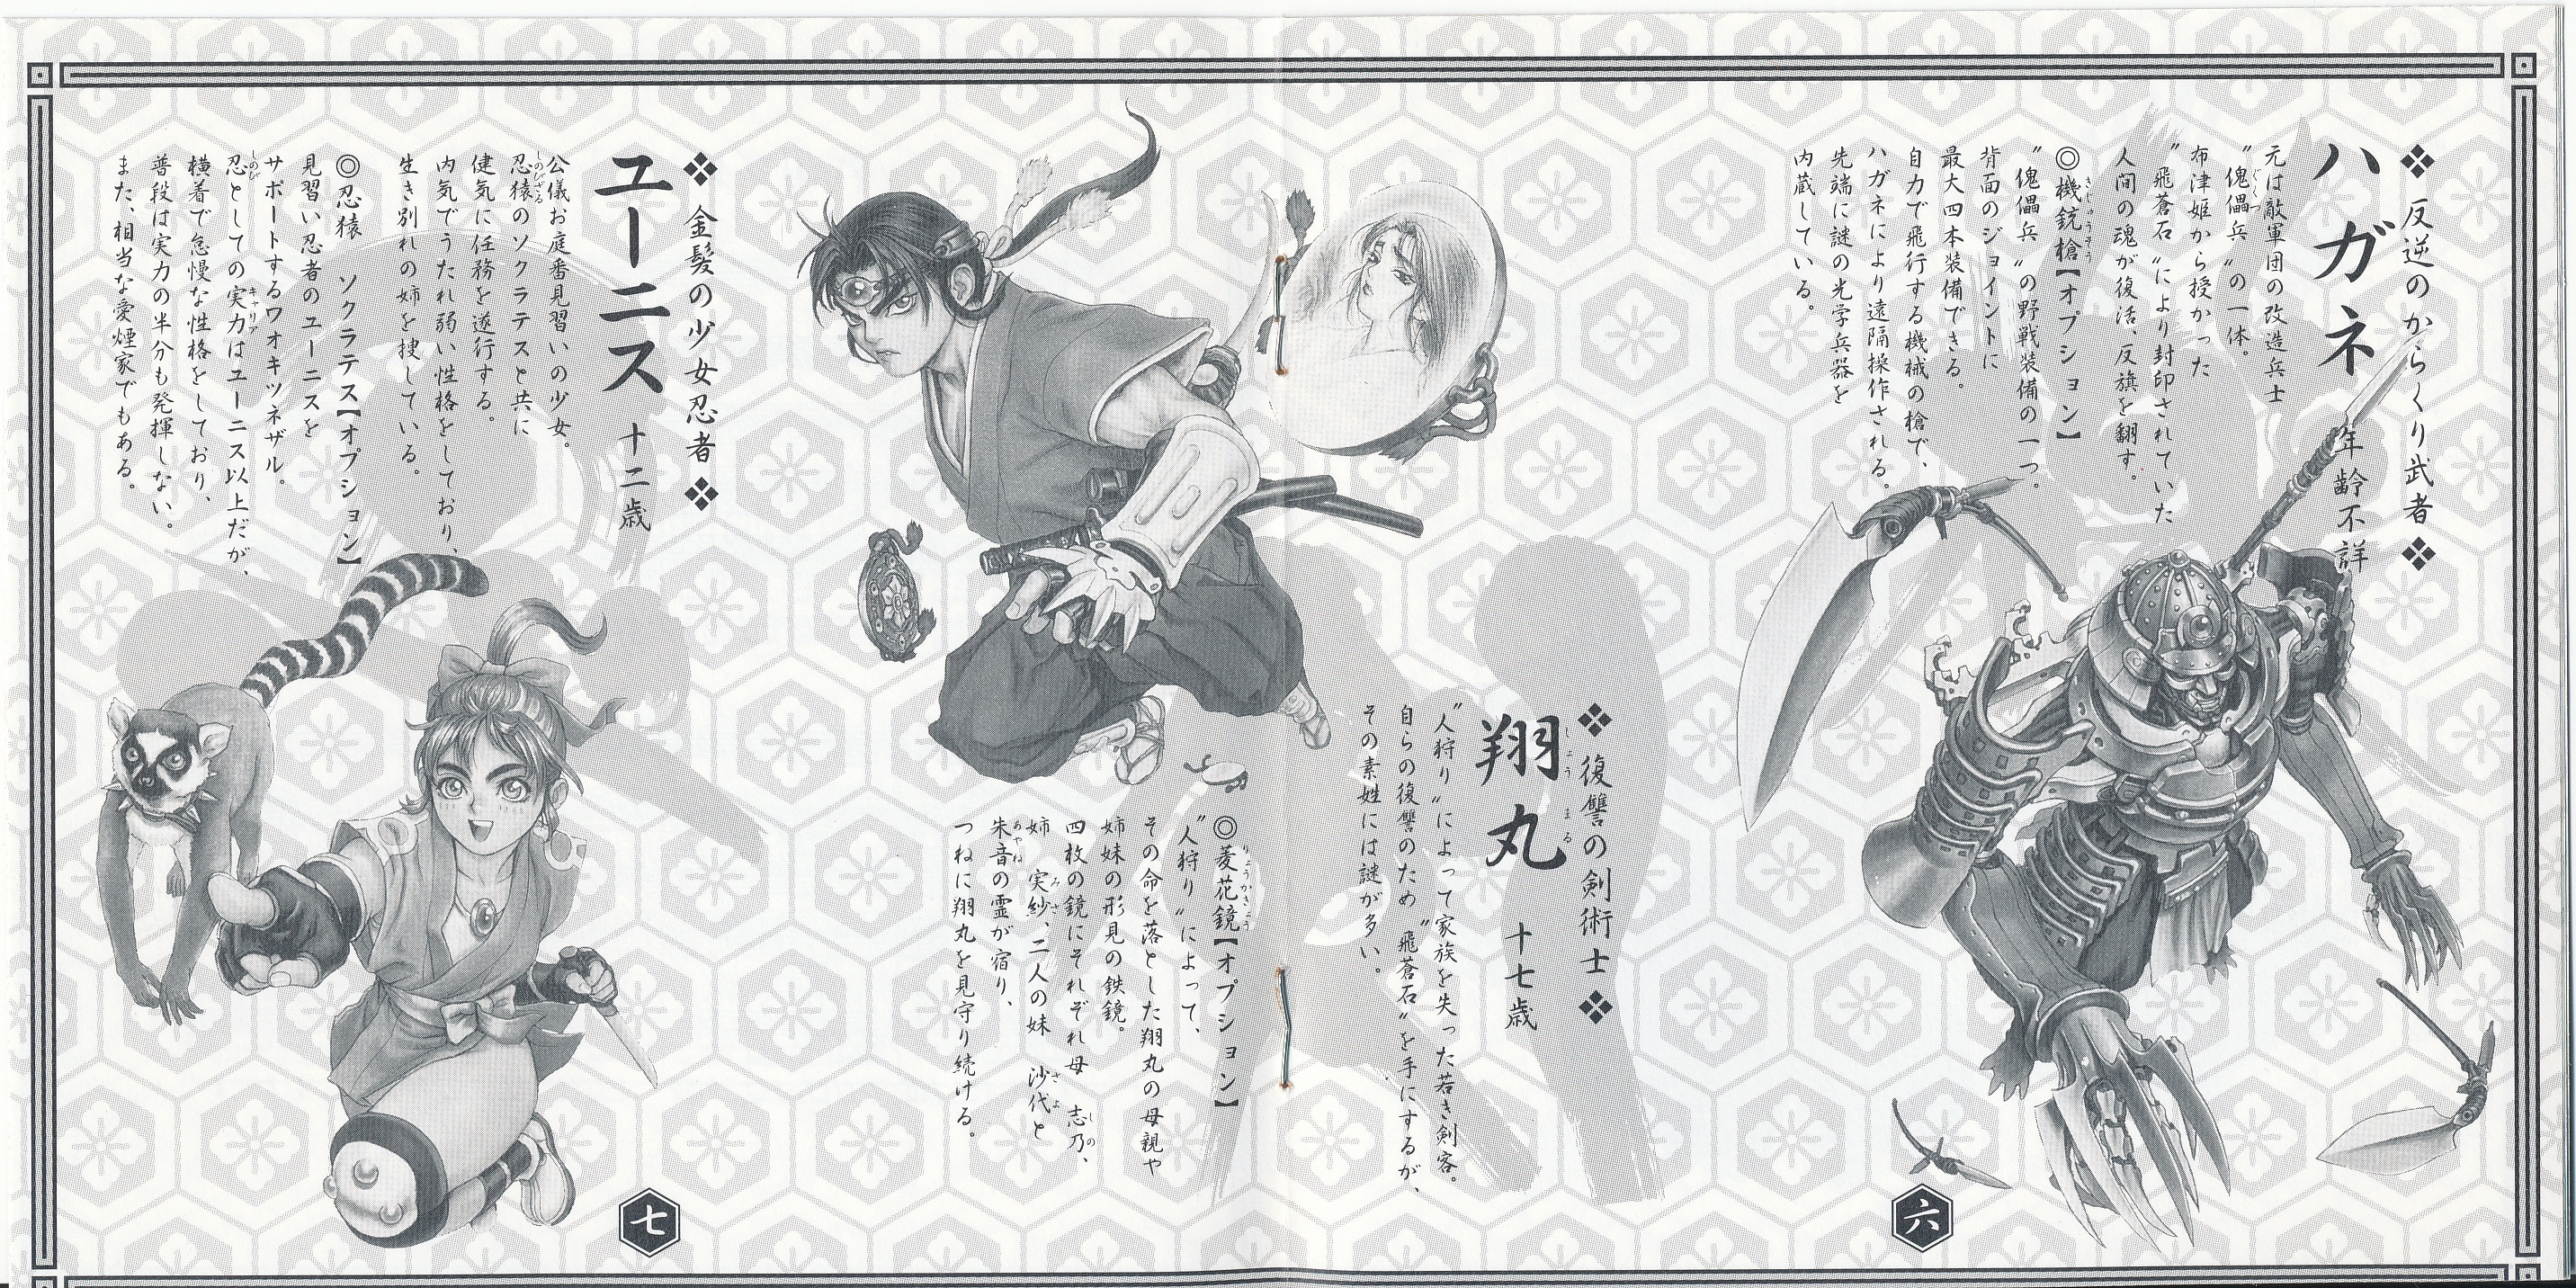 ❖反逆のからくり武者❖
ハガネ 年齢不詳
元は敵軍団の改造兵士
〝傀儡兵〟の一体。
ぐくつ
布津姫から授かった
〝飛蒼石〟により封印されていた
人間の魂が復活、反旗を翻す。
◎機銃槍【オプション】
きじゅうそう
〝傀儡兵〟の野戦装備の一つ。
背面のジョイントに
最大四本装備できる。
自力で飛行する機械の槍で、
ハガネにより遠隔操作される。
先端に謎の光学兵器を
内蔵している。
六
❖復讐の剣術士❖
翔丸 十七歳
しょうまる
〝人狩り〟によって家族を失った若き剣客。
自らの復讐のため〝飛蒼石〟を手にするが、
その素姓には謎が多い。
◎菱花鏡【オプション】
りょうかきょう
〝人狩り〟によって、
その命を落とした翔丸の母親や
姉妹の形見の鉄鏡。
四枚の鏡にそれぞれ母 志乃、
しの
姉 実紗、二人の妹 沙代と
みさ さよ
朱音の霊が宿り、
あやね
つねに翔丸を見守り続ける。
❖金髪の少女忍者❖
ユーニス 十二歳
公儀お庭番見習いの少女。
忍猿のソクラテスと共に
しのびざる
健気に任務を遂行する。
内気でうたれ弱い性格をしており、
生き別れの姉を捜している。
◎忍猿 ソクラテス【オプション】
見習い忍者のユーニスを
サポートするワオキツネザル。
忍としての実力はユーニス以上だが、
しのび キャリア
横着で怠慢な性格をしており、
普段は実力の半分も発揮しない。
また、相当な愛煙家でもある。
七